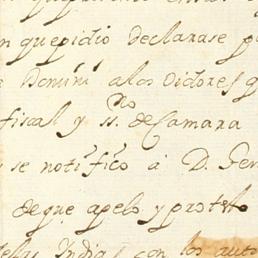 en que pidio declarase p
Bonini a los oidores q
fiscal y ss.no de Camara
y se notifico â D. Ger
de que apelo, y protesto
Indias con los auto